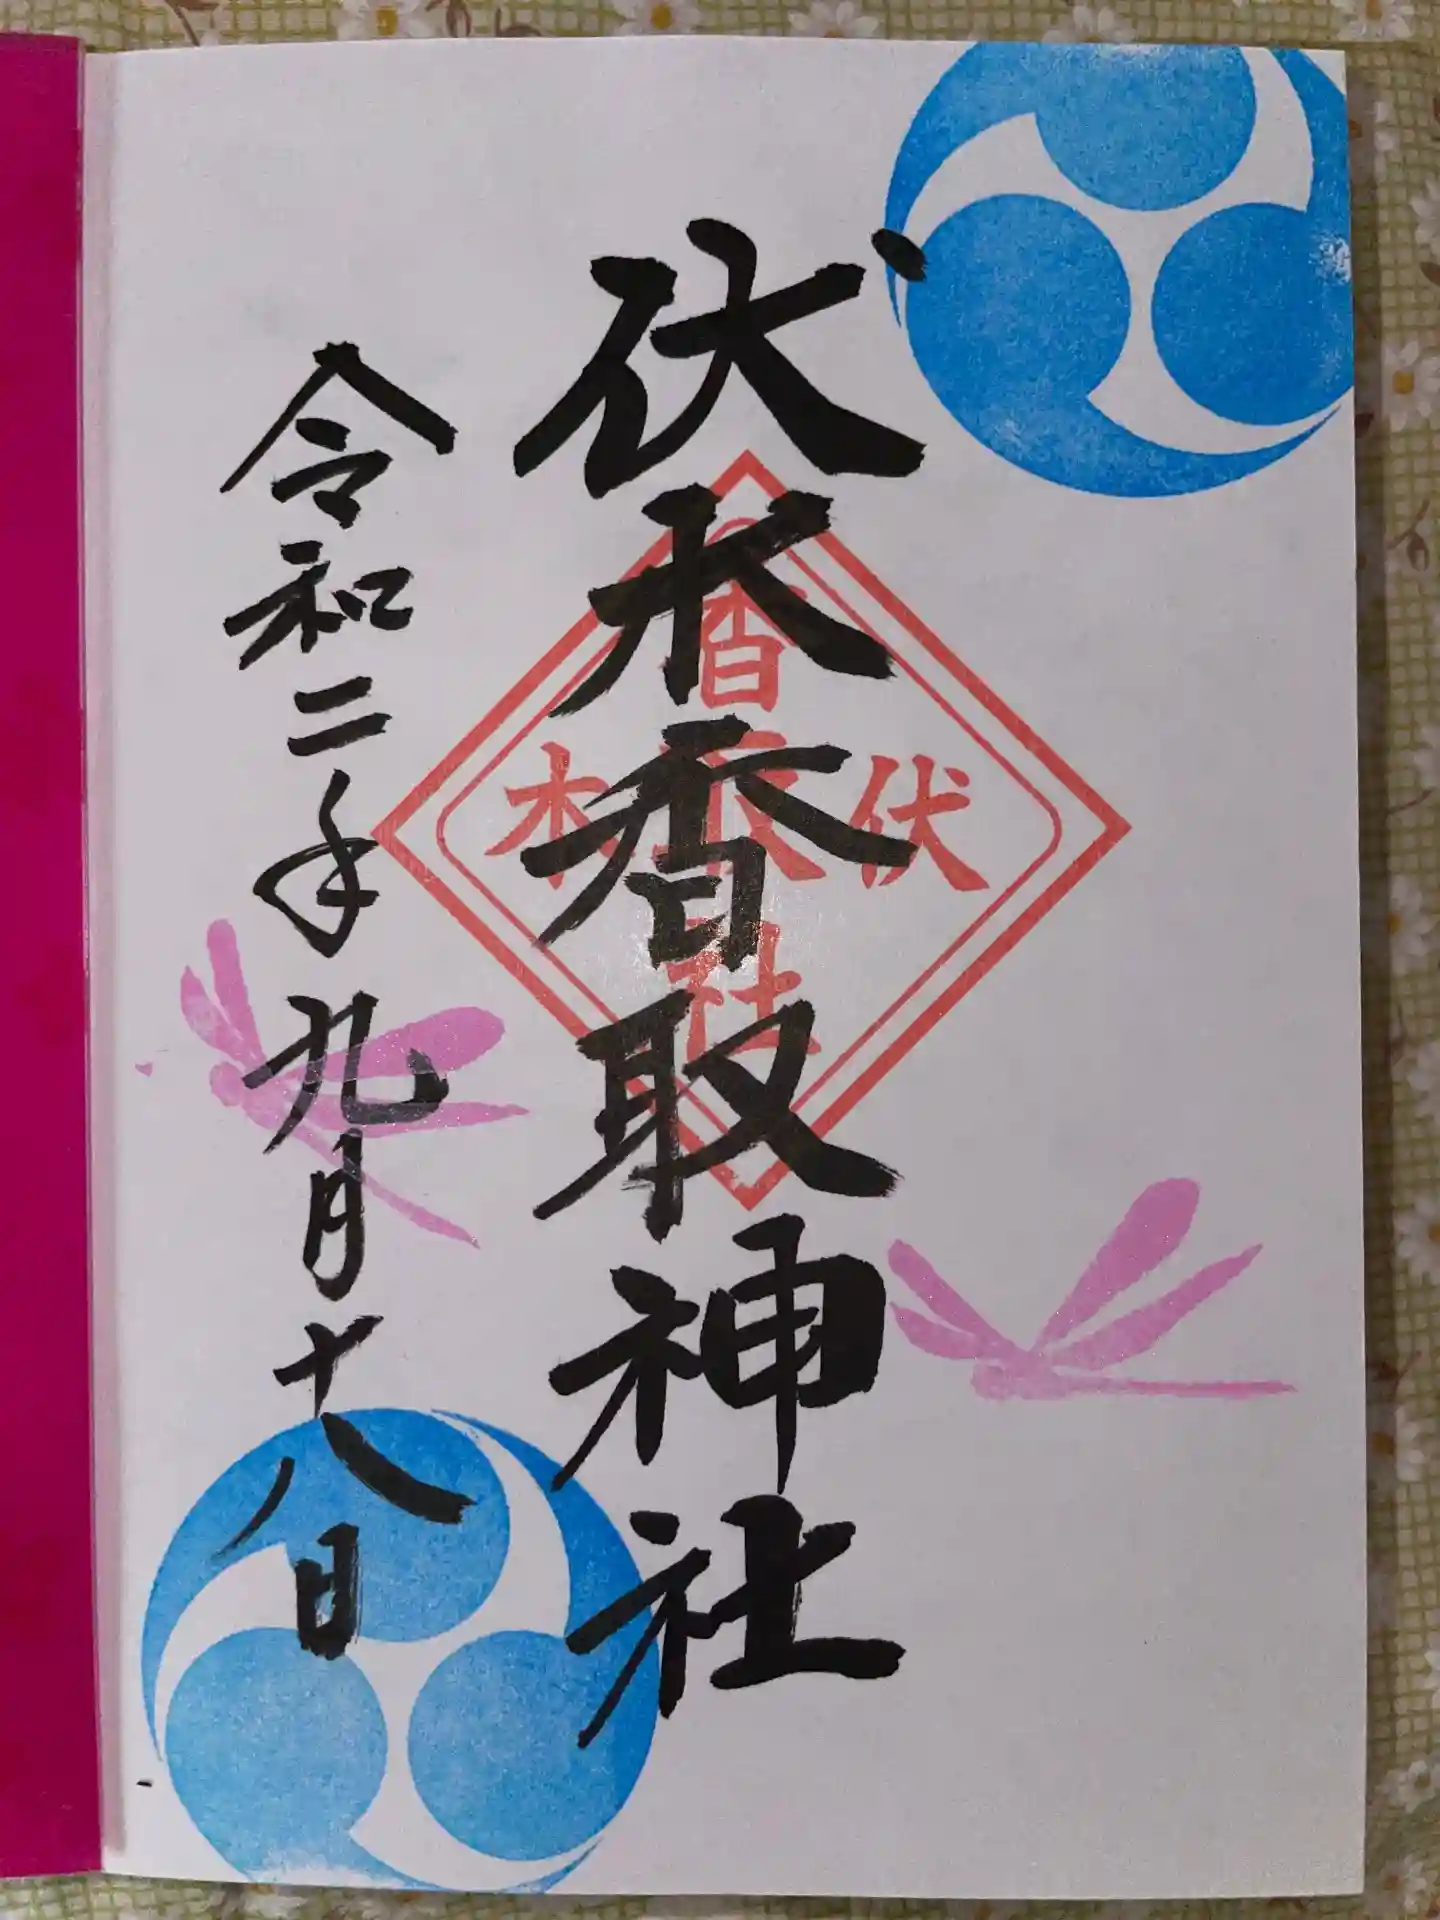 伏木香取神社
伏木
香取
社
令和二年九月十八日